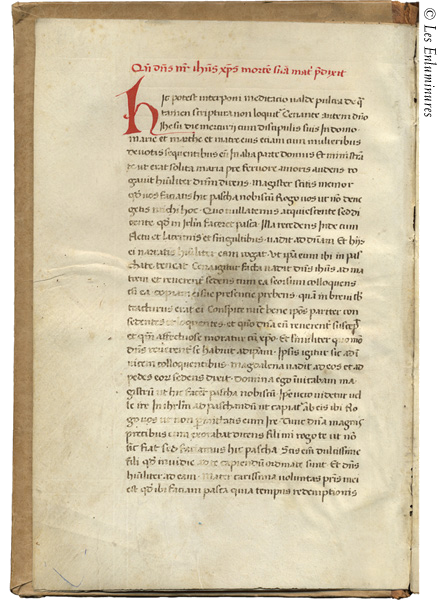 Qn̄ dn̄s nr̄ ihūs xp̄s morte suā mat' p̄dixit
Hic potest interponi meditatio valde pulcra de q̄
tamen scriptura non loquit'. Cenante autem dn̄o
Ihesu die mercurii cum discipulis suis in domo
marie et marthe et matre eius etiam cum mulieribus
devotis sequentibus eū in alia parte domus et ministrā
te ut erat solita maria pre fervore amoris audens ro
gavit hūiliter dn̄m dicens. magister sitis memor
qd̄ vos faciatis hic pascha nobiscū Rogo vos ut nō de
negetis michi hoc. Quo nullatenus acquiescente sed di
cente. qd̄ in Jrlm̄ faceret pasca. Illa recedens inde cum
fletu et lacrimis et singultibus vadit ad dn̄am. Et hijs
ei narratis hūiliter eam rogat. ut ipsa eum ibi in pas
chate teneat. Cena igitur facta vadit dn̄s ihūs ad ma
trem et reverent' sedens cum ea seorsum colloquens
cū ea. copiam ei sue presentie prebens. quam in brevi sb̄
tracturus erat ei Conspice nūc bene ip̄os pariter con
sedentes colloquentes. et quō dn̄a eū reverent' suscep'
et qm̄ affectuose moratur cū xp̄o. Et similiter quomō
dn̄s reverent' se habuit ad ip̄am. Ipsis igitur sic ad
colloquentibus. magdalena vadit ad eos et ad
pedes eorz sedens dixit. Domina ego invitabam ma
gistrū ut hic facet' pascha nobiscū. Ipse vero videtur vel
le ire in ihrlm̄ ad paschandū ut capiat' ab eis ibi Rogo
vos ut non p̄mittatis eum ire. Tunc dn̄a magnis
precibus eum exorabat dicens. fili mi rogo te ut nō
sic fiat sed faciamus hic pascha. Scis eni dulcissime
fili qd̄ insidie ad te capiendū ordinate sunt. Et dn̄s
hūiliter ad eam. Mater carissima voluntas pris mei
est qd̄ ibi faciam pasca quia tempus redemptionis
© Les Enluminures